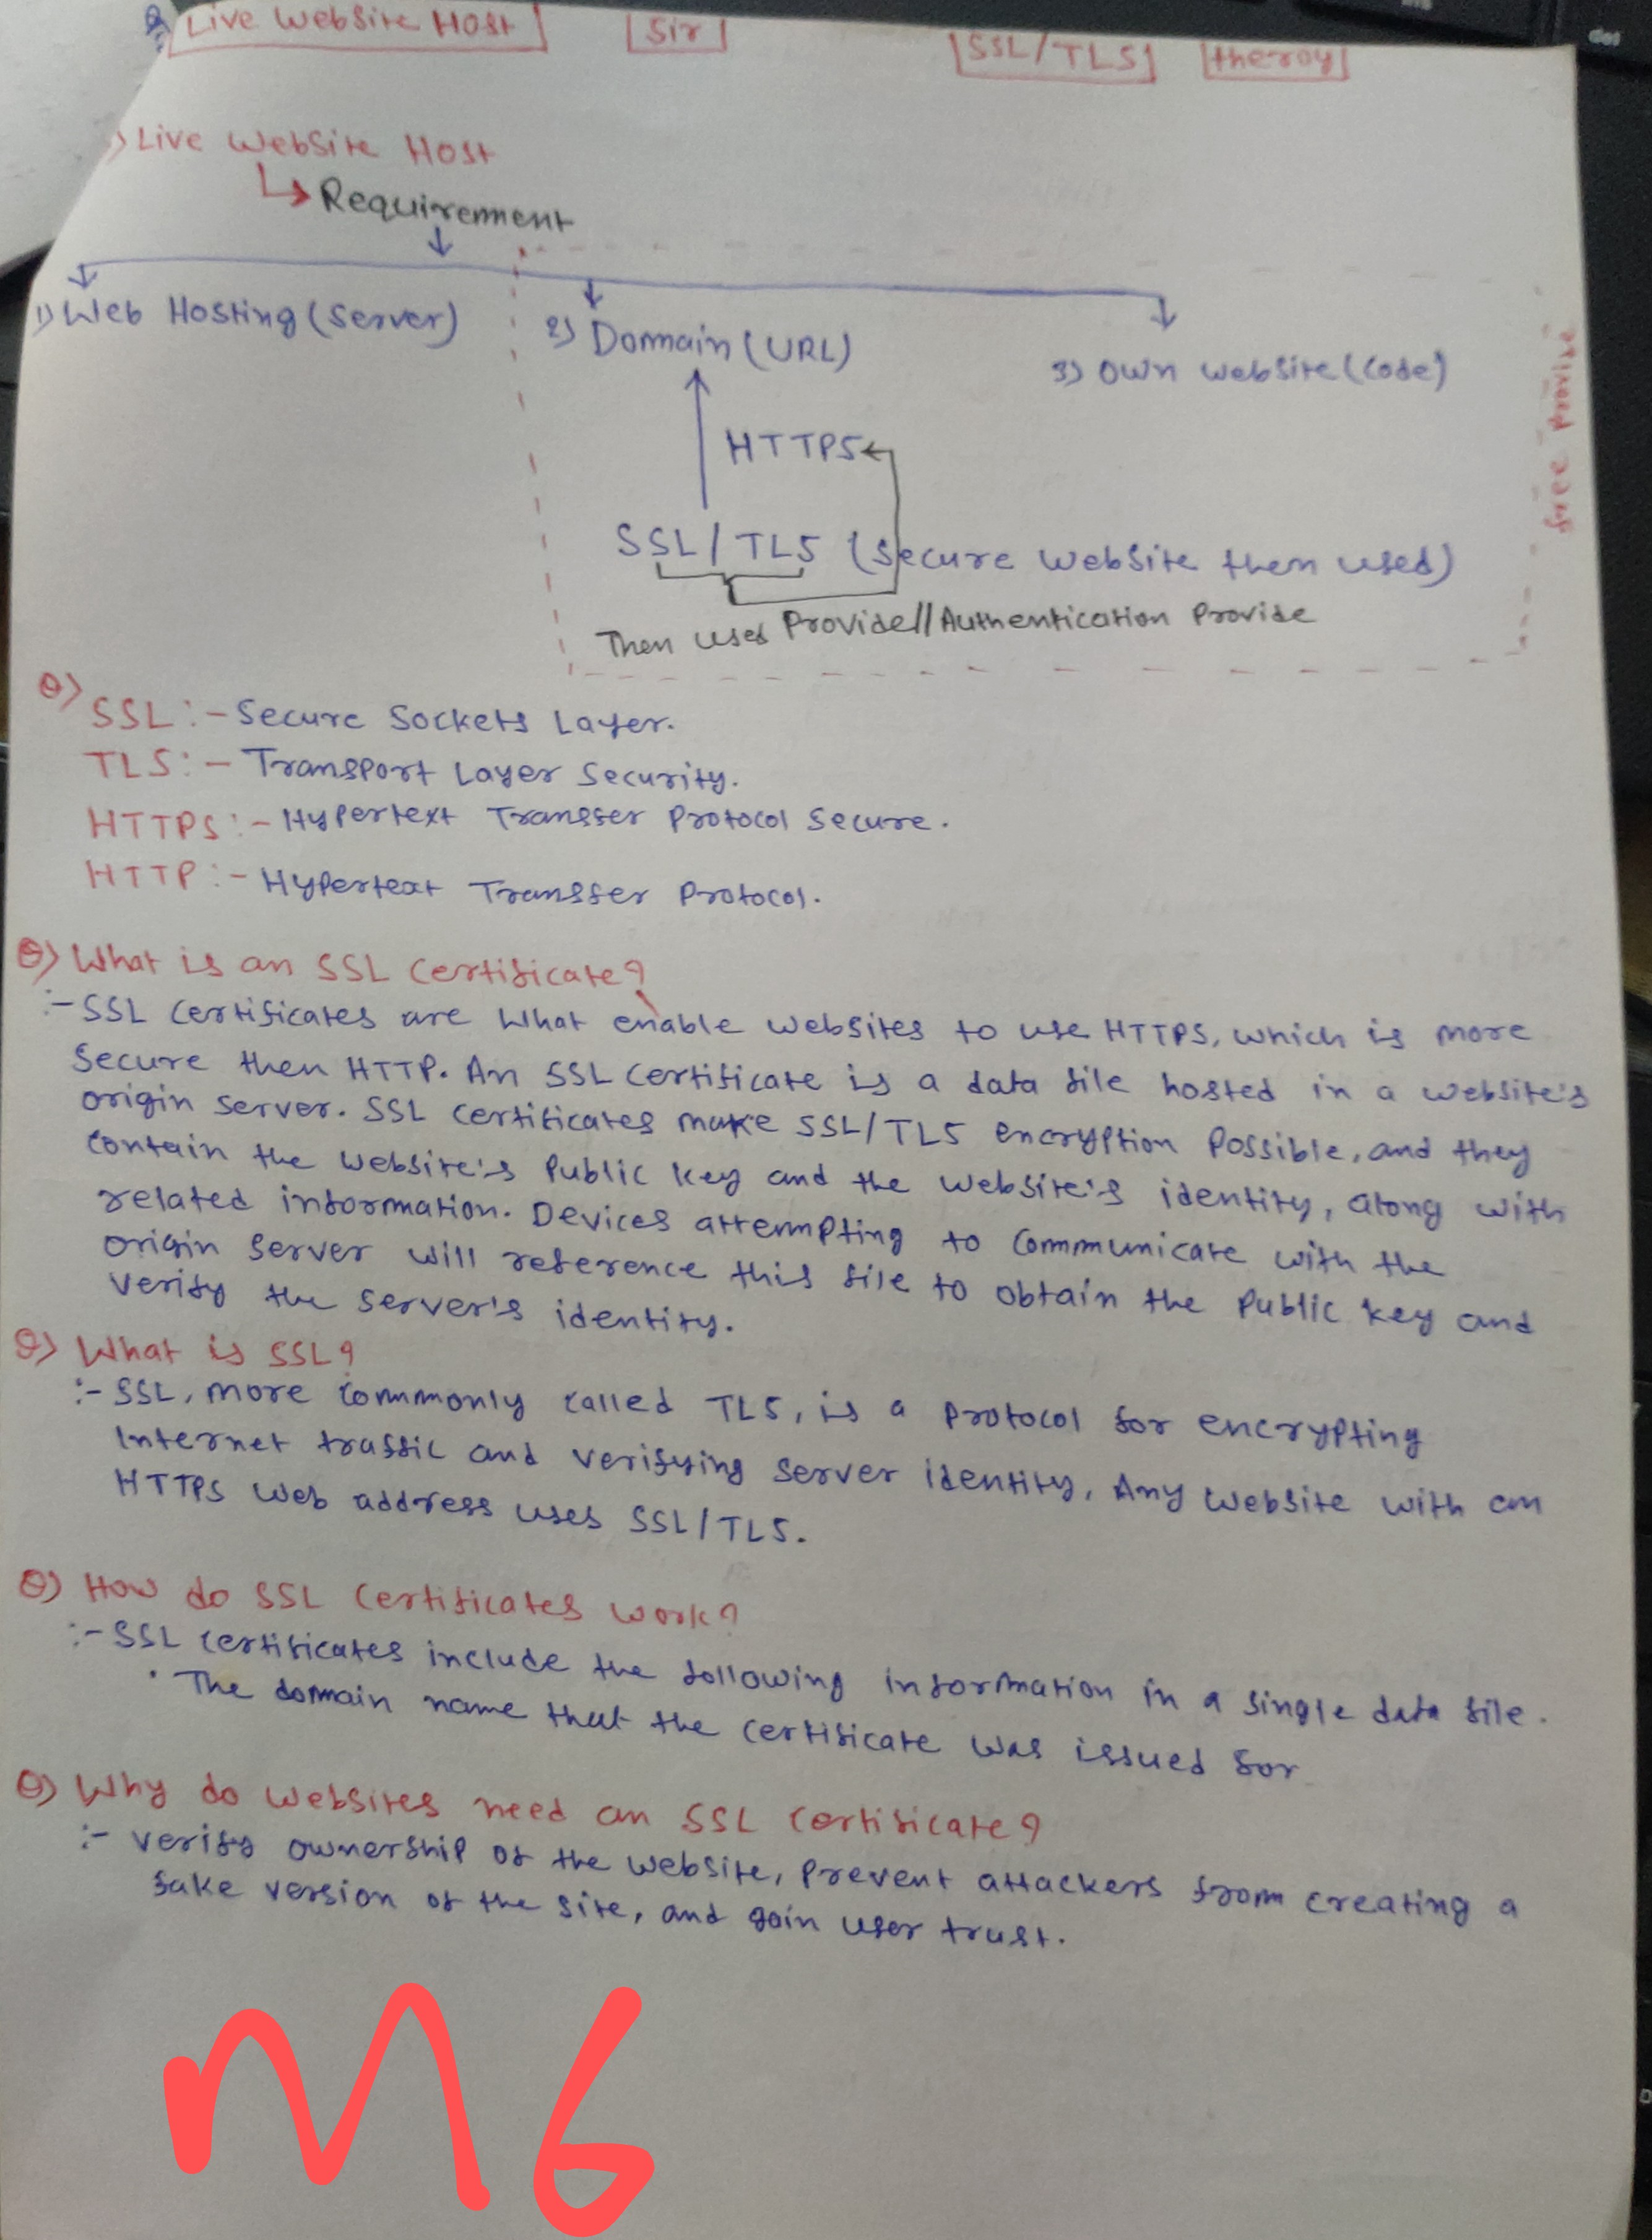 Live Website Host Sir SSL/TLS theroy
Live Website Host
Requirement
1) Web Hosting (Server)
2) Domain (URL)
3) Own website (Code)
HTTPS
SSL/TLS (Secure Website then used)
Then used Provide//Authentication Provide
free Provide
Q)
SSL :- Secure Sockets Layer.
TLS :- Transport Layer Security.
HTTPS :- Hypertext Transfer Protocol Secure.
HTTP :- Hypertext Transfer Protocol.
Q) What is an SSL Certificate?
:- SSL Certificates are What enable Websites to use HTTPS, which is more
Secure then HTTP. An SSL Certificate is a data file hosted in a website's
origin Server. SSL Certificates make SSL/TLS encryption Possible, and they
contain the Website's Public Key and the website's identity, along with
related information. Devices attempting to Communicate with the
origin Server will reference this file to obtain the Public key and
Verify the Server's identity.
Q) What is SSL?
:- SSL, more Commonly called TLS, is a Protocol for encrypting
Internet traffic and Verifying Server identity, Any Website with an
HTTPS Web address uses SSL/TLS.
Q) How do SSL Certificates work?
:- SSL Certificates include the following information in a Single data file.
• The domain name that the Certificate was issued for
Q) Why do Websites need an SSL Certificate?
:- Verify ownership of the Website, Prevent attackers from creating a
fake version of the Site, and gain user trust.
M6